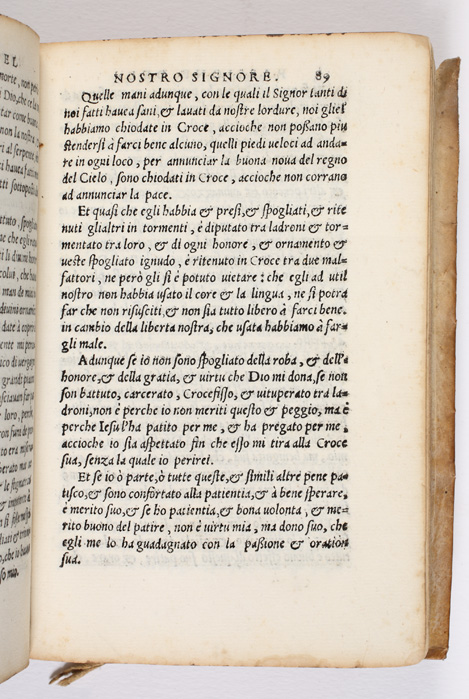 EL
NOSTRO SIGNORE. 89
Quelle mani adunque, con le quali il Signor tanti di
noi fatti hauea sani, & lauati da nostre lordure, noi gliel
habbiamo chiodate in Croce, accioche non poſſano piu
ſtenderſi à farci bene alcuno, quelli piedi veloci ad anda=
re in ogni loco, per annunciar la buona noua del regno
del Cielo, sono chiodati in Croce, accioche non corrano
ad annunciar la pace.
Et quaſi che egli habbia & preſi, & ſpogliati, & rite
nuti glialtri in tormenti, è diputato tra ladroni & tor=
mentato tra loro, & di ogni honore, & ornamento &
ueſte ſpogliato ignudo, è ritenuto in Croce tra due mal=
fattori, ne però gli ſi è potuto uietare: che egli ad util
noſtro non habbia uſato il core & la lingua, ne ſi potrà
far che non riſuſciti, & non ſia tutto libero à farci bene.
in cambio della liberta noſtra, che uſata habbiamo à far=
gli male.
Adunque se io non sono ſpogliato della roba, & dell'a
honore, & della gratia, & uirtu che Dio mi dona, se non
son battuto, carcerato, Crocefiſſo, & uituperato tra la=
droni, non è perche io non meriti queſto & peggio, ma è
perche Iesu l'ha patito per me, & ha pregato per me,
accioche io ſia aſpettato fin che eſſo mi tira alla Croce
sua, senza la quale io perirei.
Et se io ò parte, ò tutte queſte, & ſimili altre pene pa=
tiſco, & sono confortato alla patientia, & à bene ſperare,
è merito suo, & se ho patientia, & bona volontà, & me=
rito buono del patire, non è uirtu mia, ma dono suo, che
egli me lo ha guadagnato con la paſſione & oration
sua.